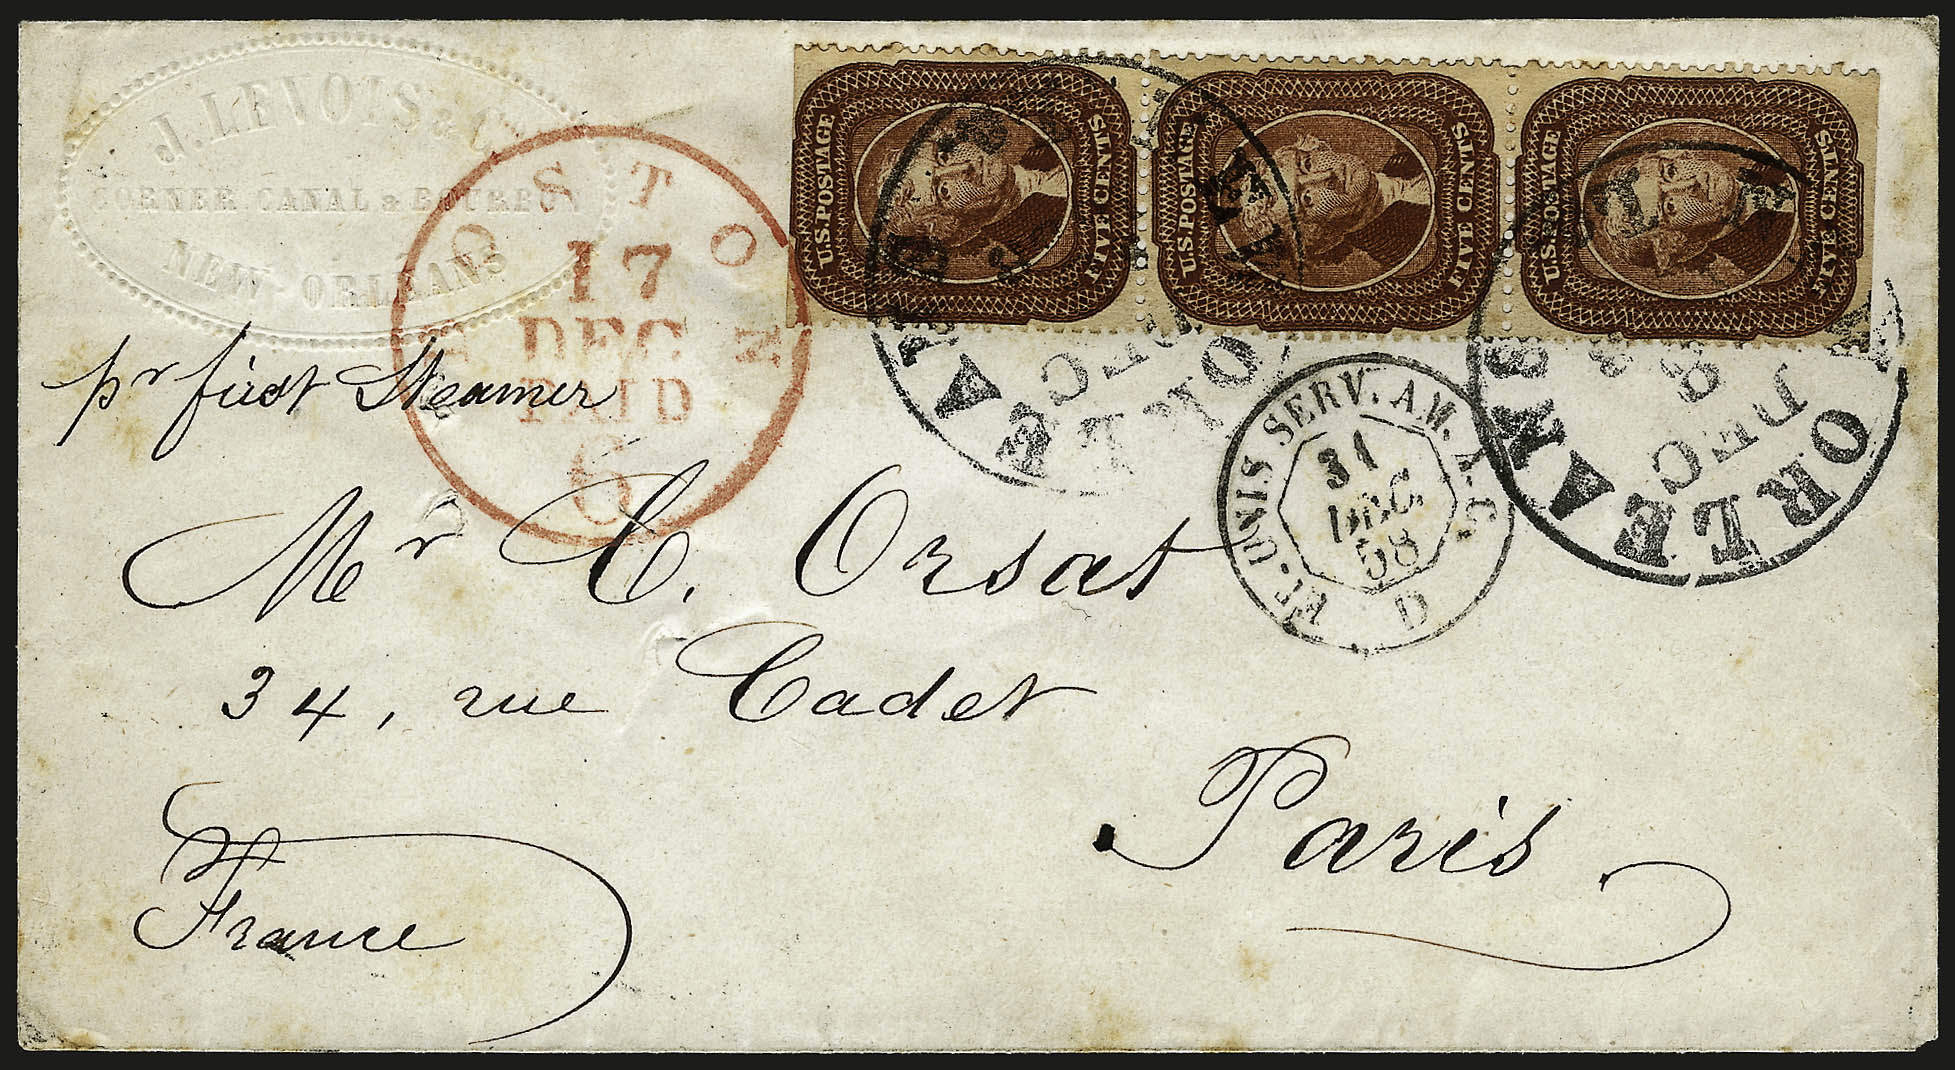 J. LEVOIS & Co
CORNER CANAL & BOURBON
NEW ORLEANS
BOSTON
17
DEC
PAID
6
U.S. POSTAGE
FIVE CENTS
U.S. POSTAGE
FIVE CENTS
U.S. POSTAGE
FIVE CENTS
ORLEANS
DEC
ORLEANS
DEC
8
ET. UNIS SERV. AM. A.C.
31
DEC
58
D
pr first Steamer
Mr C. Orsat
34, rue Cadet
Paris
France